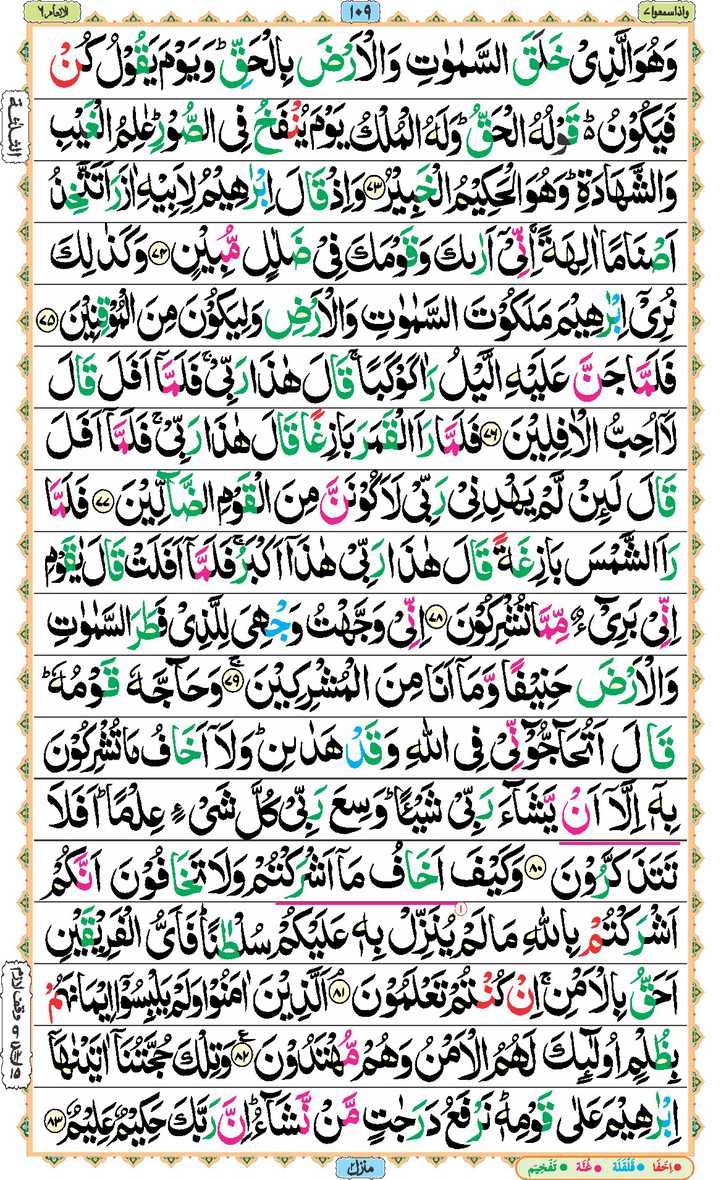 واذا سمعوا ٧
١٠٩
الانعام ٦
وَهُوَ الَّذِىْ خَلَقَ السَّمٰوٰتِ وَالْاَرْضَ بِالْحَقِّ ؕ وَيَوْمَ يَقُوْلُ كُنْ
فَيَكُوْنُ ؕ قَوْلُهُ الْحَقُّ ؕ وَلَهُ الْمُلْكُ يَوْمَ يُنْفَخُ فِى الصُّوْرِ ؕ عٰلِمُ الْغَيْبِ
وَالشَّهَادَةِ ؕ وَهُوَ الْحَكِيْمُ الْخَبِيْرُ ﴿٧٣﴾ وَاِذْ قَالَ اِبْرٰهِيْمُ لِاَبِيْهِ اٰزَرَ اَتَتَّخِذُ
اَصْنَامًا اٰلِهَةً ۚ اِنِّىْۤ اَرٰٮكَ وَقَوْمَكَ فِىْ ضَلٰلٍ مُّبِيْنٍ ﴿٧٤﴾ وَكَذٰلِكَ
نُرِىْۤ اِبْرٰهِيْمَ مَلَكُوْتَ السَّمٰوٰتِ وَالْاَرْضِ وَلِيَكُوْنَ مِنَ الْمُوْقِنِيْنَ ﴿٧٥﴾
فَلَمَّا جَنَّ عَلَيْهِ الَّيْلُ رَاٰ كَوْكَبًا ۚ قَالَ هٰذَا رَبِّىْ ۚ فَلَمَّاۤ اَفَلَ قَالَ
لَاۤ اُحِبُّ الْاٰفِلِيْنَ ﴿٧٦﴾ فَلَمَّا رَاَ الْقَمَرَ بَازِغًا قَالَ هٰذَا رَبِّىْ ۚ فَلَمَّاۤ اَفَلَ
قَالَ لَئِنْ لَّمْ يَهْدِنِىْ رَبِّىْ لَاَكُوْنَنَّ مِنَ الْقَوْمِ الضَّآلِّيْنَ ﴿٧٧﴾ فَلَمَّا
رَاَ الشَّمْسَ بَازِغَةً قَالَ هٰذَا رَبِّىْ هٰذَاۤ اَكْبَرُ ۚ فَلَمَّاۤ اَفَلَتْ قَالَ يٰقَوْمِ
اِنِّىْ بَرِىْٓءٌ مِّمَّا تُشْرِكُوْنَ ﴿٧٨﴾ اِنِّىْ وَجَّهْتُ وَجْهِىَ لِلَّذِىْ فَطَرَ السَّمٰوٰتِ
وَالْاَرْضَ حَنِيْفًا وَّمَاۤ اَنَا مِنَ الْمُشْرِكِيْنَ ۚ ﴿٧٩﴾ وَحَآجَّهٗ قَوْمُهٗ ؕ
قَالَ اَتُحَآجُّوْٓنِّىْ فِى اللّٰهِ وَقَدْ هَدٰٮنِ ؕ وَلَاۤ اَخَافُ مَا تُشْرِكُوْنَ
بِهٖۤ اِلَّاۤ اَنْ يَّشَآءَ رَبِّىْ شَيْـًٔا ؕ وَسِعَ رَبِّىْ كُلَّ شَىْءٍ عِلْمًا ؕ اَفَلَا
تَتَذَكَّرُوْنَ ﴿٨٠﴾ وَكَيْفَ اَخَافُ مَاۤ اَشْرَكْتُمْ وَلَا تَخَافُوْنَ اَنَّكُمْ
اَشْرَكْتُمْ بِاللّٰهِ مَا لَمْ يُنَزِّلْ بِهٖ عَلَيْكُمْ سُلْطٰنًا ؕ فَاَىُّ الْفَرِيْقَيْنِ
اَحَقُّ بِالْاَمْنِ ۚ اِنْ كُنْتُمْ تَعْلَمُوْنَ ۘ ﴿٨١﴾ اَلَّذِيْنَ اٰمَنُوْا وَلَمْ يَلْبِسُوْۤا اِيْمَانَهُمْ
بِظُلْمٍ اُولٰٓئِكَ لَهُمُ الْاَمْنُ وَهُمْ مُّهْتَدُوْنَ ﴿٨٢﴾ وَتِلْكَ حُجَّتُنَاۤ اٰتَيْنٰهَاۤ
اِبْرٰهِيْمَ عَلٰى قَوْمِهٖ ؕ نَرْفَعُ دَرَجٰتٍ مَّنْ نَّشَآءُ ؕ اِنَّ رَبَّكَ حَكِيْمٌ عَلِيْمٌ ﴿٨٣﴾
الثلثة
منزل ٢
اِخْفَا • قَلْقَلَة • غُنَّة • تَفْخِيْم